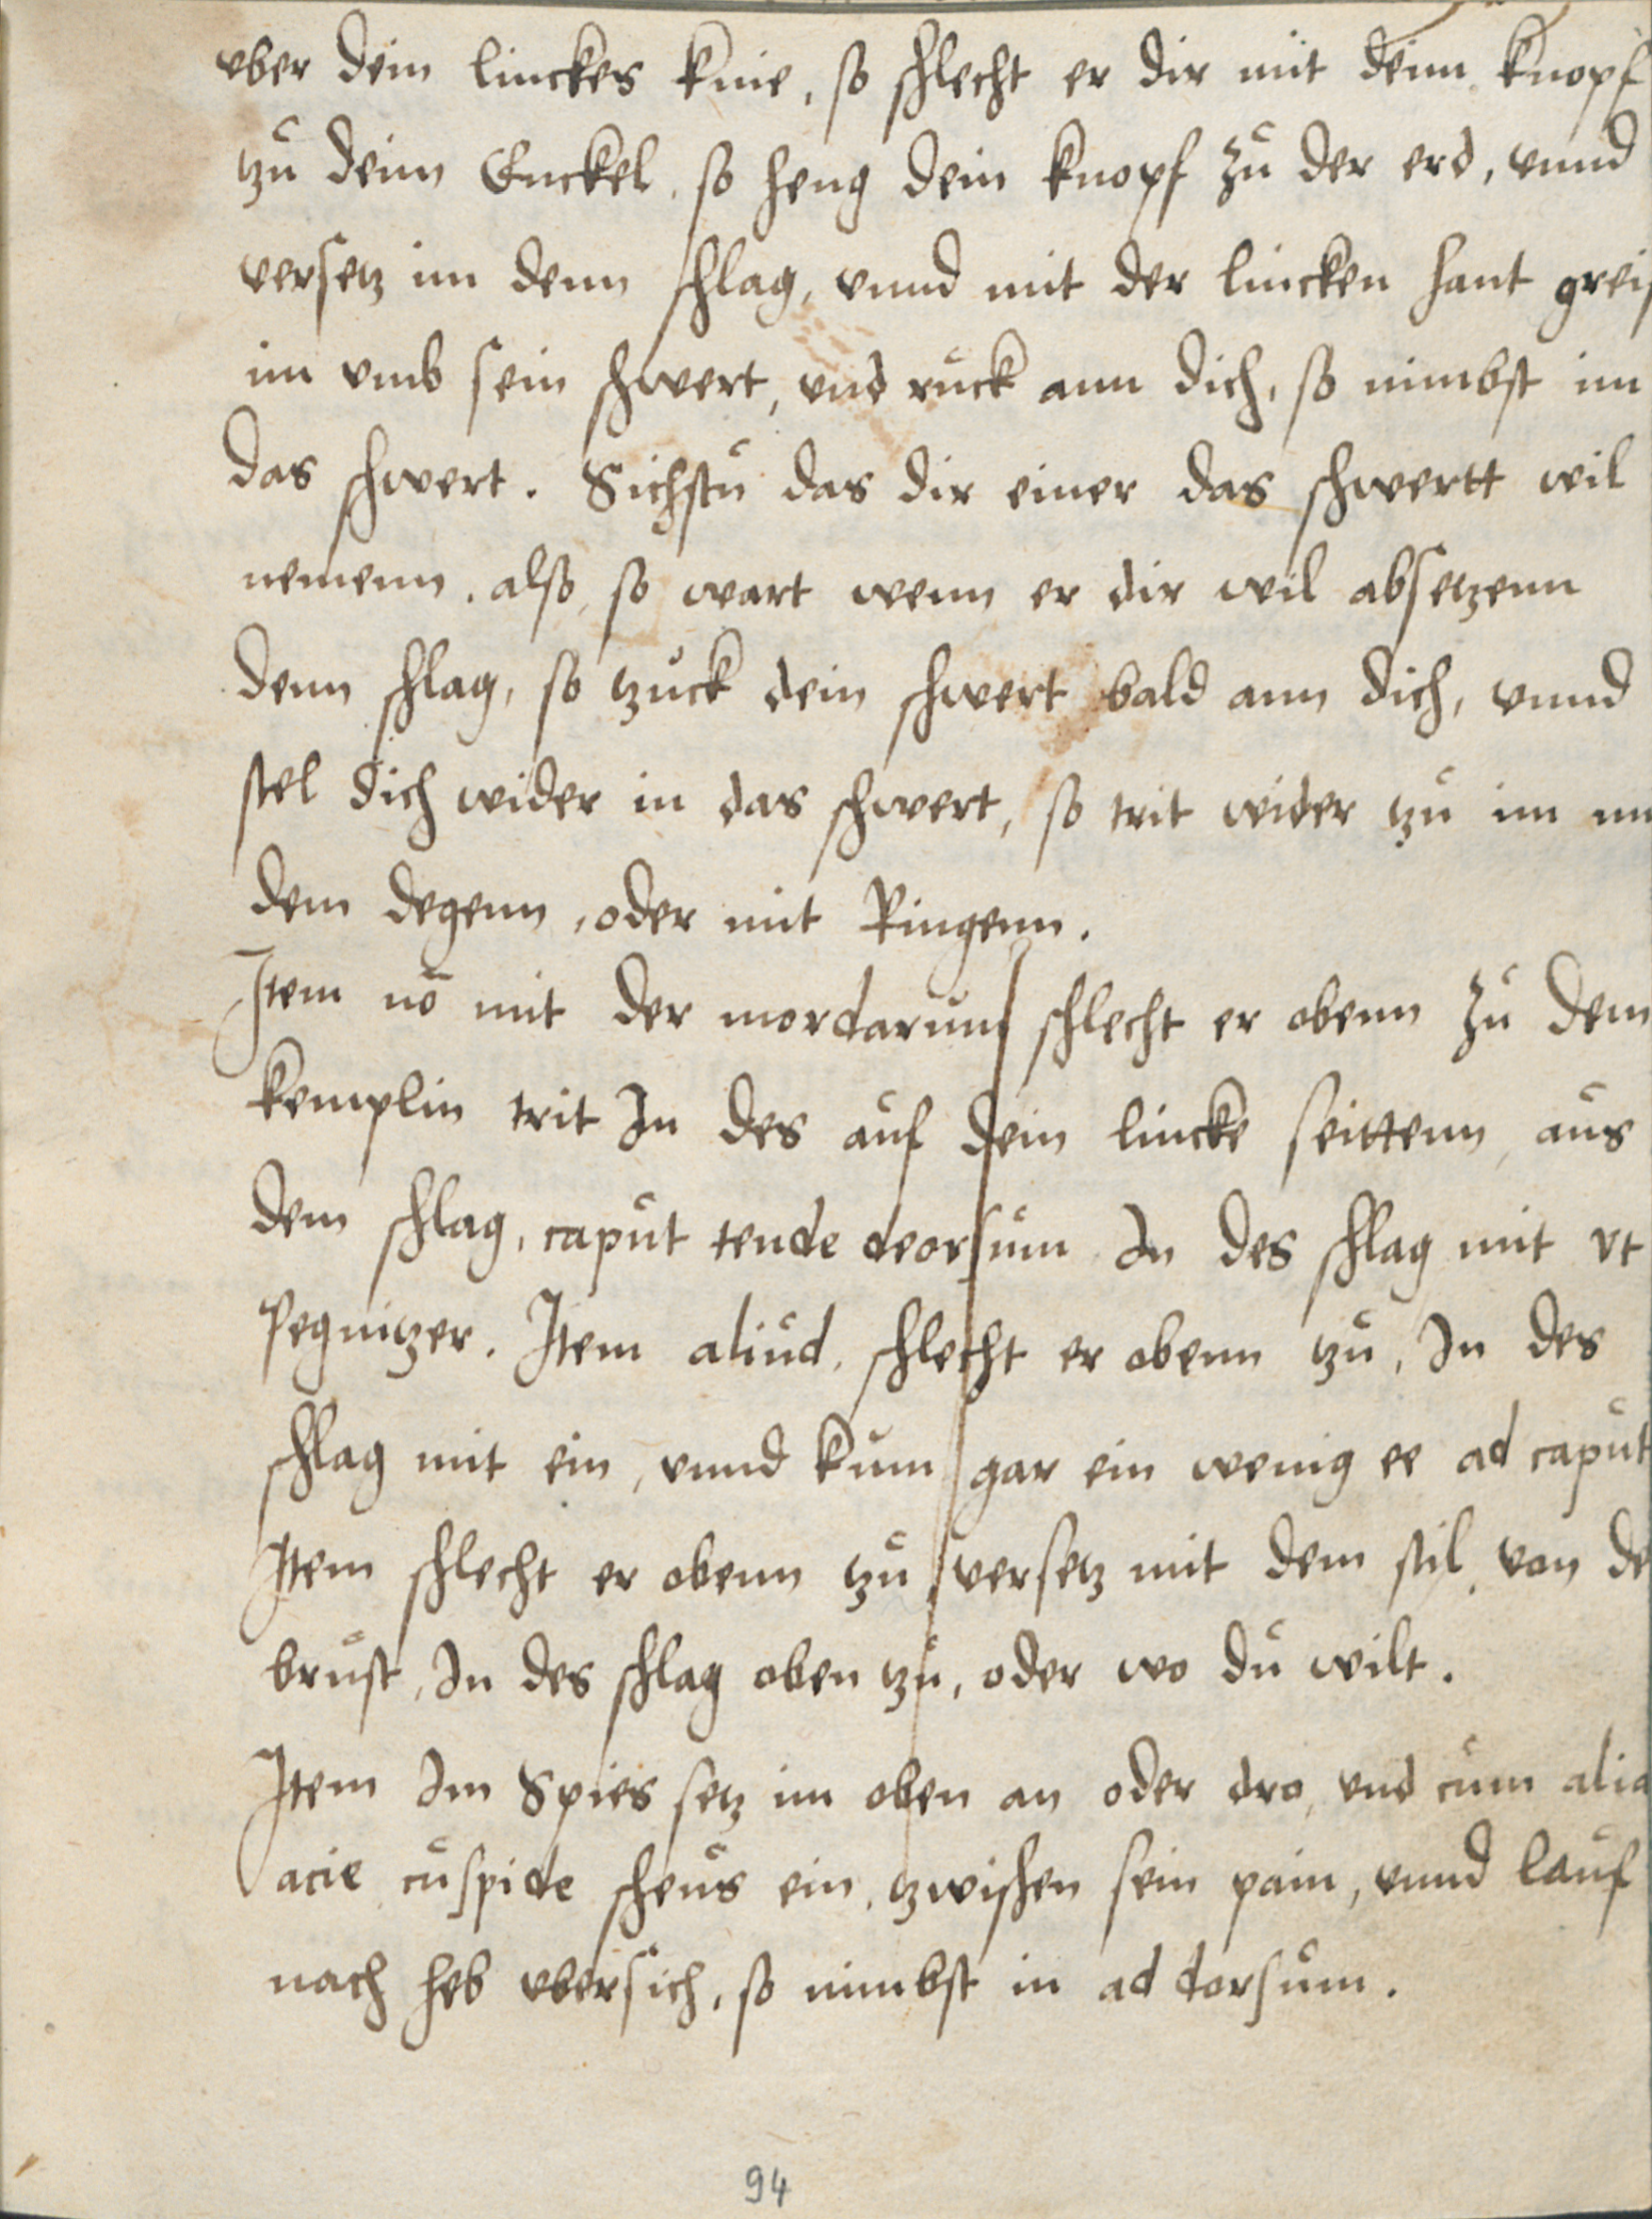 vber dein linckes knie, so schlecht er dir mit deim knopf
tzu deim Enckel, so heng dein knopf zu der erd, vnnd
versetz im denn schlag, vnnd mit der lincken hant greif
im vmb sein schwert, vnd ruck ann dich, so nimbst im
das schwert. Sichstu das dir einer das schwertt wil
nemenn, also, so wart wenn er dir wil absetzenn
denn schlag, so tzuck dein schwert bald ann dich, vnnd
stel dich wider in das schwert, so trit wider tzu im
dem degenn, oder mit Ringenn.
Item no mit der mordaruns schlecht er obenn zu dem
kemplin trit In des auf dein lincke seittenn, aus
dem schlag, caput tende deorsum In des schlag mit vt
Pegnitzer. Item aliud, schlecht er obenn tzu, In des
schlag mit ein, vnnd kum gar ein wenig ee ad caput
Item schlecht er obenn tzu, versetz mit dem stil, von de
brust, In des schlag oben tzu, oder wo du wilt.
Item Im Spies setz im oben an oder dro, vnd cum alia
acie cuspide scheus ein, tzwischen sein pain, vnnd lauf
nach heb vbersich, so nimbst in ad dorsum.
94